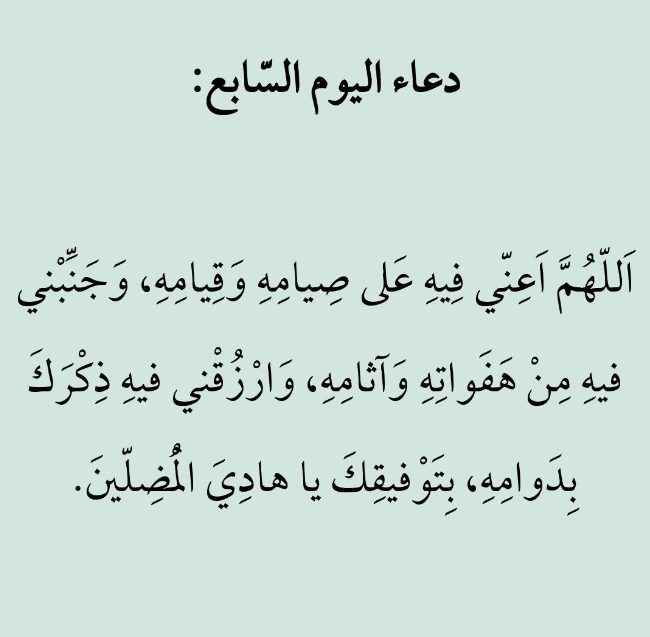 دعاء اليوم السّابع:
اَللّهُمَّ اَعِنّي فِيهِ عَلى صِيامِهِ وَقِيامِهِ، وَجَنِّبْني
فيهِ مِنْ هَفَواتِهِ وَآثامِهِ، وَارْزُقْني فيهِ ذِكْرَكَ
بِدَوامِهِ، بِتَوْفيقِكَ يا هادِيَ الْمُضِلّينَ.